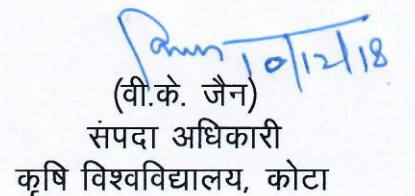 10/12/18
(वी.के. जैन)
संपदा अधिकारी
कृषि विश्वविद्यालय, कोटा